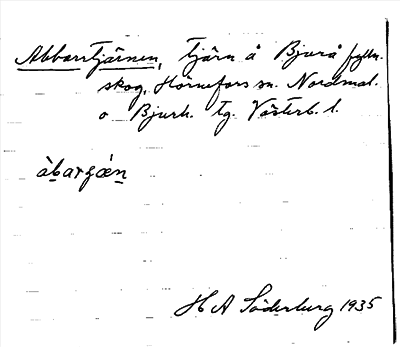 Abbarrtjärnen, tjärn å Bjurå fylln.
skog, Hörnefors sn. Nordmal.
o Bjurh. tg. Västerb. l.
àbarʒæ̀n
H A Söderburg 1935